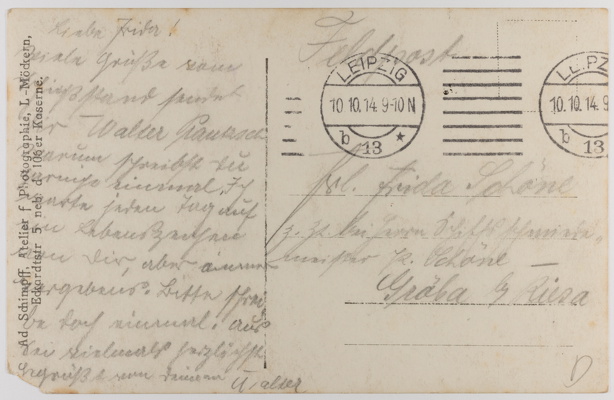 Liebe Frida!
Viele Grüße vom
sendet
Walter
Warum schreibst du
einmal. Ich
warte jeden Tag auf
ein Lebenszeichen
von Dir, aber immer
vergebens. Bitte schrei
be doch einmal. Aus
vielmals herzlichst
gegrüßt von Deinem Walter
Ad Schimpff, Atelier f Photographie, L.-Möckern,
Eckardtstr 5 neb d. 106er Kaserne.
Feldpost
LEIPZIG
10.10.14. 9-10 N
b 13 *
LEIPZ
10.10.14. 9
b 13
Frl. Frida Schöne
z. Zt. bei Herrn
meister P. Schöne
Gröba b/ Riesa
D